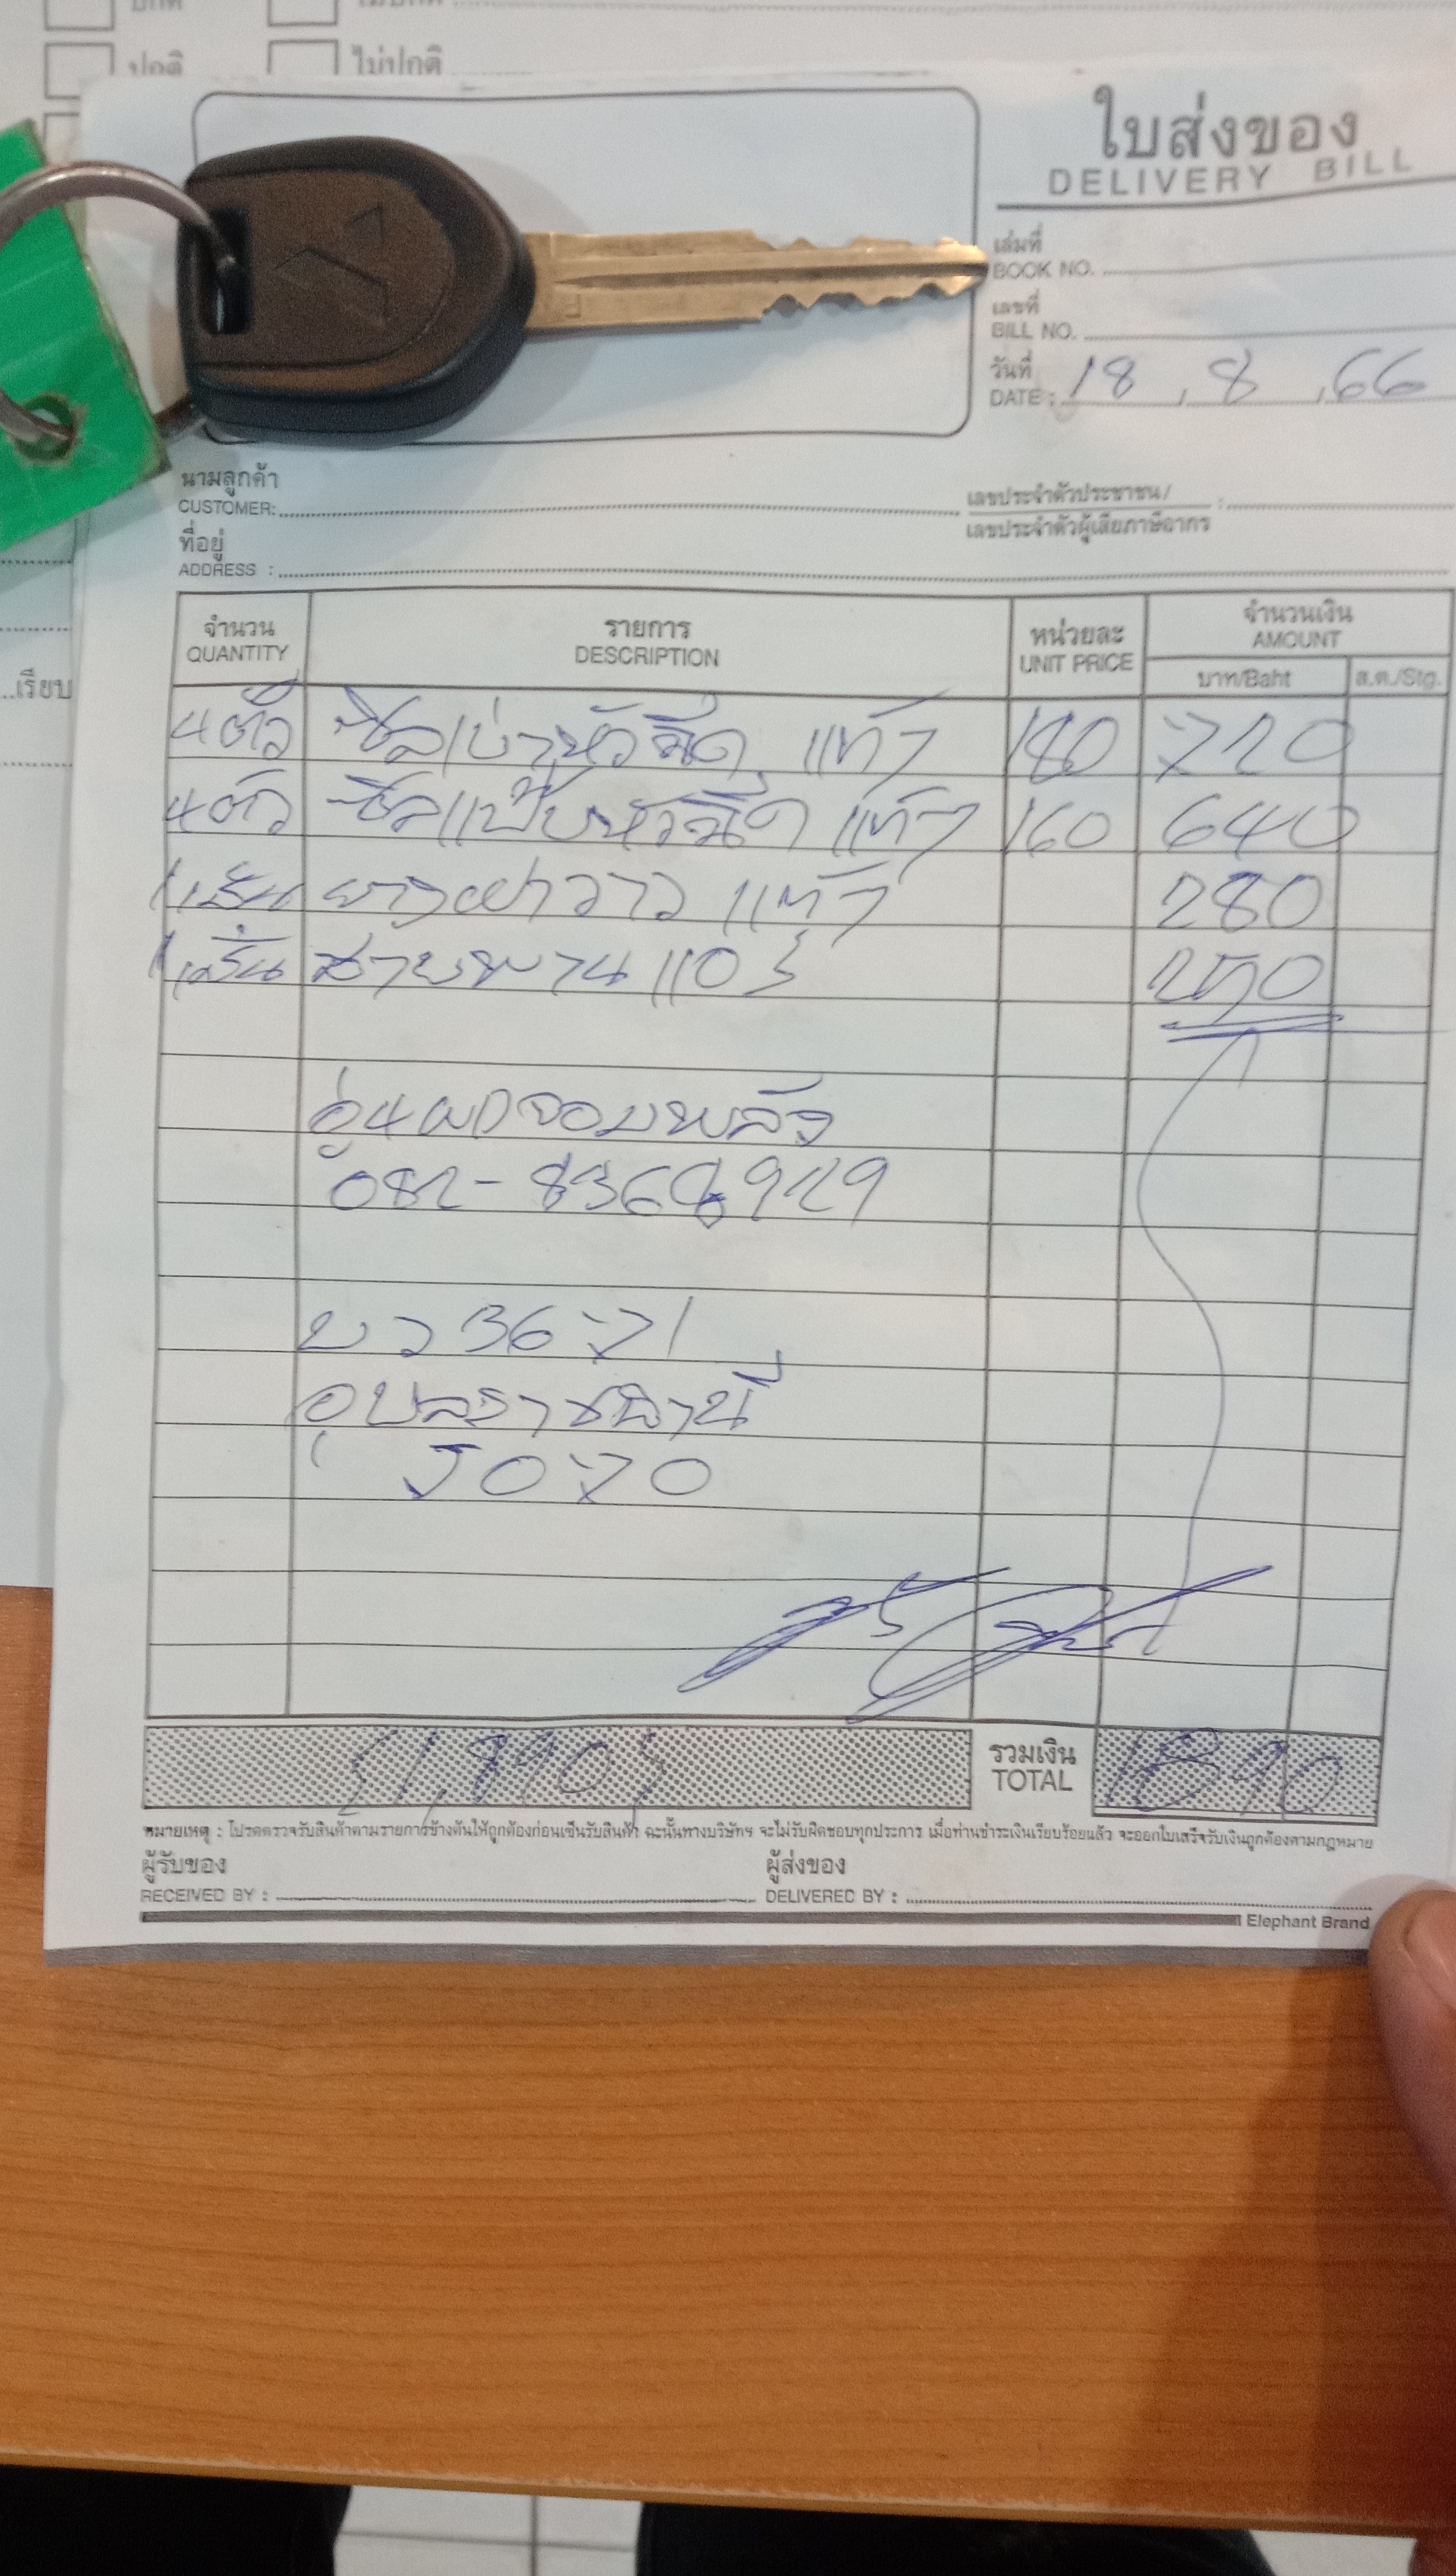 ปกติ ไม่ปกติ
ปกติ ไม่ปกติ
ใบส่งของ
DELIVERY BILL
เล่มที่
BOOK NO.
เลขที่
BILL NO.
วันที่
DATE : 18 , 8 , 66
นามลูกค้า
CUSTOMER:
เลขประจำตัวประชาชน /
เลขประจำตัวผู้เสียภาษีอากร :
ที่อยู่
ADDRESS :
...เรียบ
จำนวน รายการ หน่วยละ จำนวนเงิน
QUANTITY DESCRIPTION UNIT PRICE AMOUNT
บาท/Baht ส.ต./Stg.
4 ตัว ซีลเบ้าหัวฉีด แท้ 180 720
4 ตัว ซีลแป๊บหัวฉีด แท้ 160 640
1 เส้น ยางฝาวาว แท้ 280
1 เส้น สายพานแอร์ 250
อู่
082-8368929
บว 3671
อุบลราชธานี
5070
1,890
รวมเงิน
TOTAL 1890
หมายเหตุ : โปรดตรวจรับสินค้าตามรายการข้างต้นให้ถูกต้องก่อนเซ็นรับสินค้า ฉะนั้นทางบริษัทฯ จะไม่รับผิดชอบทุกประการ เมื่อท่านชำระเงินเรียบร้อยแล้ว จะออกใบเสร็จรับเงินถูกต้องตามกฎหมาย
ผู้รับของ ผู้ส่งของ
RECEIVED BY : DELIVERED BY :
Elephant Brand